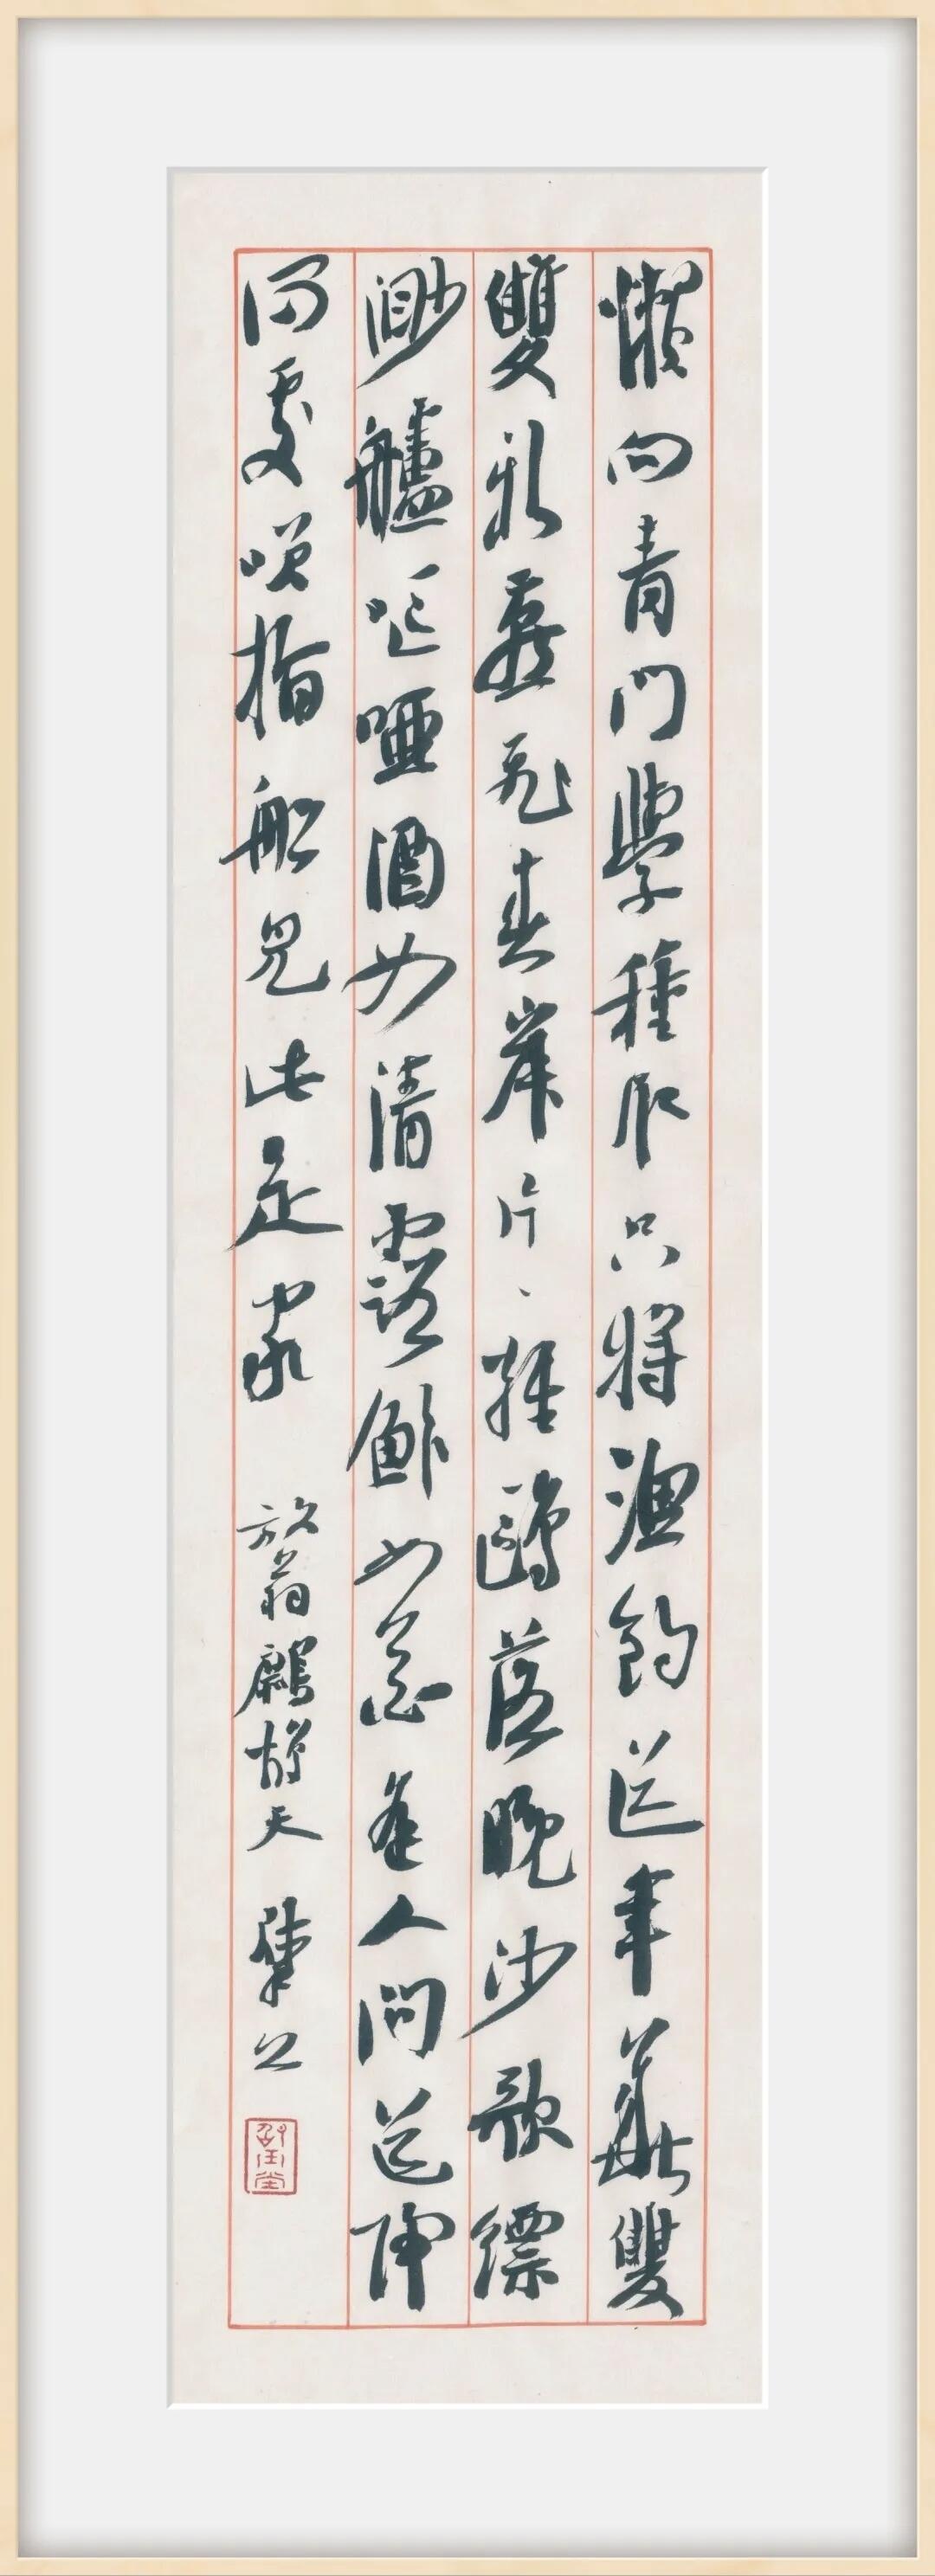 懶向青門學種瓜只將漁釣送年華雙
雙新燕飛春岸片、輕鷗落晚沙歌縹
渺艫呕啞酒如清露鮓如花逢人問道歸
何處咲指船兒此是家 放翁鷓鴣天